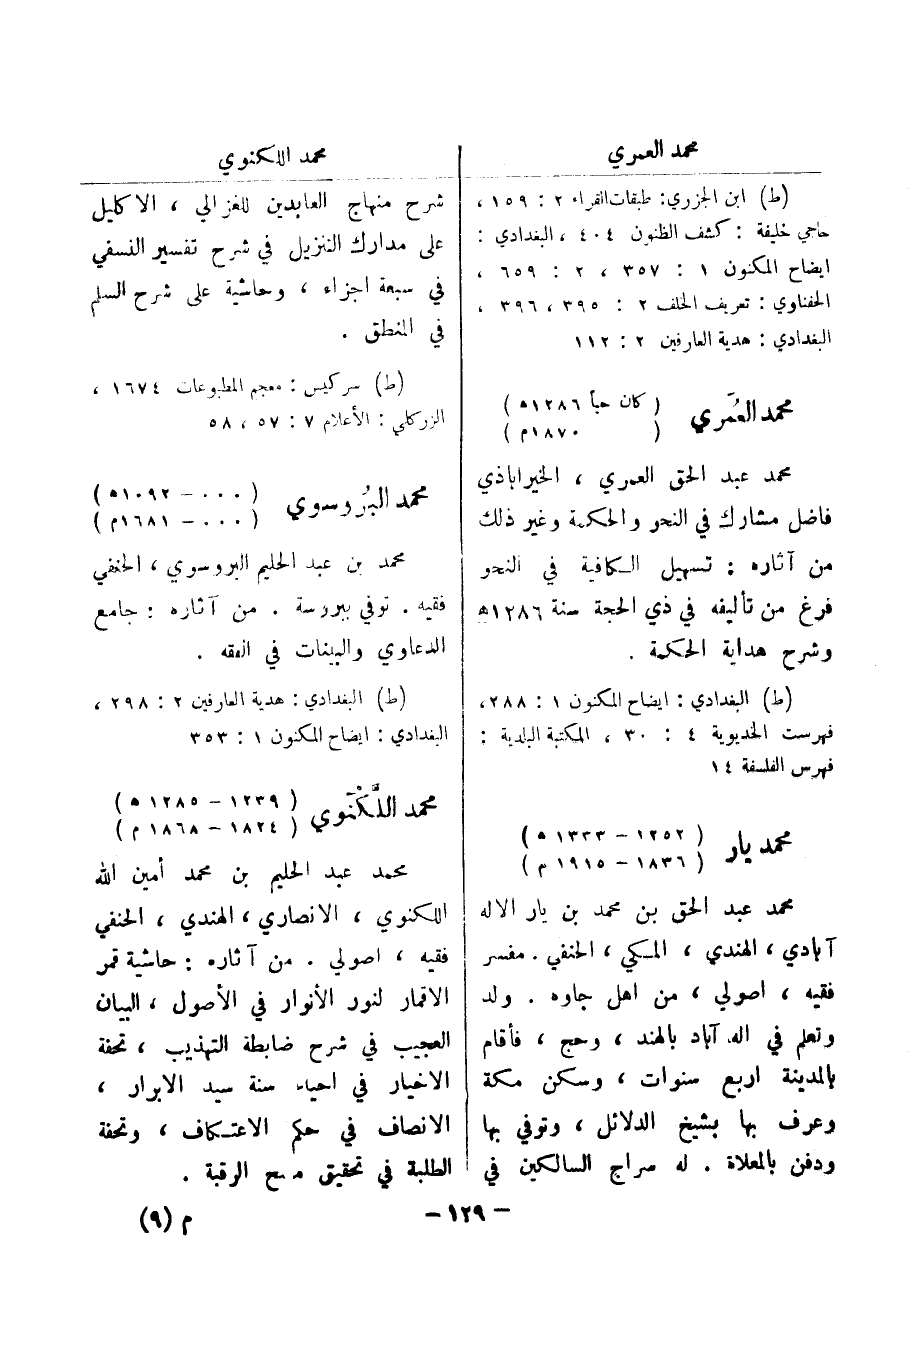 محمد العمري
(ط) ابن الجزري: طبقات القراء ٢ : ١٥٩ ،
حاجي خليفة : كشف الظنون ٤٠٤ ، البغدادي :
ايضاح المكنون ١ : ٣٥٧ ، ٢ : ٦٥٩ ،
الحفناوي : تعريف الخلف ٢ : ٣٩٥ ، ٣٩٦ ،
البغدادي : هدية العارفين ٢ : ١١٢
محمد العُمَري ( كان حياً ١٢٨٦ ه )
( ١٨٧٠ م )
محمد عبد الحق العمري ، الخيراباذي
فاضل مشارك في النحو والحكمة وغير ذلك
من آثاره : تسهيل الكافية في النحو
فرغ من تأليفه في ذي الحجة سنة ١٢٨٦ ه
وشرح هداية الحكمة .
(ط) البغدادي : ايضاح المكنون ١ : ٢٨٨،
فهرست الخديوية ٤ : ٣٠ ، المكتبة البلدية :
فهرس الفلسفة ١٤
محمد يار ( ١٢٥٢ – ١٣٣٣ ه )
( ١٨٣٦ – ١٩١٥ م )
محمد عبد الحق بن محمد بن يار الاله
آبادي ، الهندي ، المكي ، الحنفي . مفسر
فقيه ، اصولي ، من اهل جاوه . ولد
وتعلم في اله آباد بالهند ، وحج ، فأقام
بالمدينة اربع سنوات ، وسكن مكة
وعرف بها بشيخ الدلائل ، وتوفي بها
ودفن بالمعلاة . له سراج السالكين في
محمد اللكنوي
شرح منهاج العابدين للغزالي ، الاكليل
على مدارك التنزيل في شرح تفسير النسفي
في سبعة اجزاء ، وحاشية على شرح السلم
في المنطق .
(ط) سركيس : معجم المطبوعات ١٦٧٤ ،
الزركلي : الأعلام ٧ : ٥٧ ، ٥٨
محمد البُروسوي ( ٠٠٠ – ١٠٩٢ ه )
( ٠٠٠ – ١٦٨١ م )
محمد بن عبد الحليم البروسوي ، الحنفي
فقيه . توفي ببروسة . من آثاره : جامع
الدعاوي والبينات في الفقه .
(ط) البغدادي : هدية العارفين ٢ : ٢٩٨ ،
البغدادي : ايضاح المكنون ١ : ٣٥٣
محمد اللَّكْنَوي ( ١٢٣٩ – ١٢٨٥ ه )
( ١٨٢٤ – ١٨٦٨ م )
محمد عبد الحليم بن محمد أمين الله
اللكنوي ، الانصاري ، الهندي ، الحنفي
فقيه ، اصولي . من آثاره : حاشية قمر
الاقمار لنور الأنوار في الأصول ، البيان
العجيب في شرح ضابطة التهذيب ، تحفة
الاخيار في احياء سنة سيد الابرار ،
الانصاف في حكم الاعتكاف ، وتحفة
الطلبة في تحقيق مسح الرقبة .
– ١٢٩ –
م (٩)